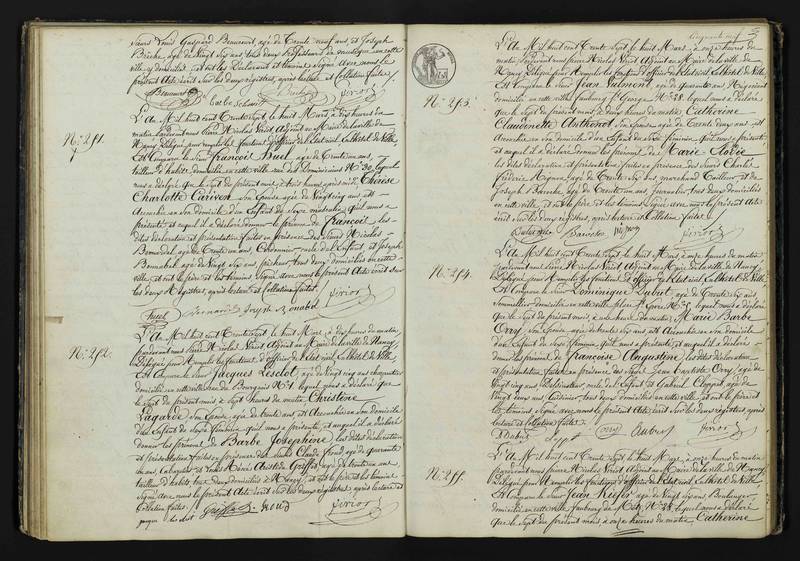 Sieurs Louis Gaspard Beaucourt, agé de Trente neuf ans, et Joseph
agé de Vingt Six ans, tous deux Professeurs de musique en cette
ville y domiciliés, et ont les Déclarant et témoins Signé avec nous le
présent Acte écrit Sur les deux registres, après lecture et Collation faites
N.º 251.
L'An Mil huit cent Trente Sept, le huit Mars, à dix heures du
matin, pardevant nous Pierre Nicolas Voriot Adjoint au Maire de la ville de
Nancy, Délégué pour remplir les fonctions d'officier de l'état civil, à l'hôtel de Ville,
Est Comparu le Sieur François Huel, agé de Trente un ans,
tailleur d'habits, domicilié en cette ville rue des Dominicains N.º 30, lequel
nous a déclaré que le Sept du présent mois, à trois heures après midi, Thérèse
Charlotte Cariven Son Epouse, agée de Vingt cinq ans est
Accouchée en son domicile d'un Enfant de Sexe masculin qu'il nous a
présenté, et auquel il a déclaré donner le prénom de François, les
dites déclaration et présentation faites en présence des Sieurs Nicolas
agé de Trente un ans, Cordonnier, oncle de l'Enfant, et Joseph
Bonnabel, agé de Vingt Six ans, pêcheur, tous deux domiciliés en cette
ville, et ont le père et les témoins Signé avec nous le présent Acte écrit sur
les deux Registres, après lecture et Collation faites.
Huel Joseph Bonnabel Voriot
N.º 252.
L'An Mil huit cent Trente Sept, le huit Mars, à dix heures du matin
pardevant nous Pierre Nicolas Voriot Adjoint au Maire de la ville de Nancy,
Délégué pour remplir les fonctions d'officier de l'état civil, à l'hôtel de Ville,
Est Comparu le Sieur Jacques Lesclot, agé de Vingt cinq ans, charpentier
domicilié en cette ville, rue de Bourgogne N.º 1, lequel nous a déclaré que
le Sept du présent mois à Sept heures du matin, Christine
Lagarde Son Epouse, agée de Trente ans, est Accouchée en son domicile
d'un Enfant de Sexe féminin, qu'il nous a présenté, et auquel il a déclaré
donner les prénoms de Barbe Joséphine, les dites déclaration
et présentation faites en présence des Sieurs Claude Giroud, agé de quarante
ans, et Louis Aristide Griffet, agé de trente un ans
tailleur d'habits, tous deux domiciliés à Nancy, et ont le père et les témoins
Signé avec nous le présent Acte écrit Sur les deux registres, après lecture et
Collation faites.
Voriot
N.º 253.
L'An Mil huit cent Trente Sept, le huit Mars, à onze heures du
matin, pardevant nous Pierre Nicolas Voriot Adjoint au Maire de la ville de
Nancy, Délégué pour remplir les fonctions d'officier de l'état civil, à l'hôtel de Ville,
Est Comparu le Sieur Jean Vulmont, agé de quarante ans,
domicilié en cette ville faubourg St George N.º 28, lequel nous a déclaré
que le Sept du présent mois à deux heures du matin, Catherine
Claudinette Anthoine Son Epouse, agée de Trente deux ans, est
Accouchée en son domicile d'un Enfant de Sexe féminin, qu'il nous a présenté
et auquel il a déclaré donner les prénoms de Marie Élodie
les dites déclaration et présentation faites en présence des Sieurs Charles
Frédéric agé de Trente Six ans, marchand Tailleur, et de
Joseph agé de Trente un ans, journalier, tous deux domiciliés
en cette ville, et ont le père et les témoins Signé avec nous le présent Acte
écrit Sur les deux registres, après lecture et Collation faites.
Voriot
N.º 254.
L'An Mil huit cent Trente Sept, le huit Mars à onze heures du matin
pardevant nous Pierre Nicolas Voriot Adjoint au Maire de la ville de Nancy,
Délégué pour remplir les fonctions d'officier de l'état civil, à l'hôtel de Ville,
Est Comparu le Sieur Dominique Aubry, agé de Trente Six ans
Sommelier domicilié en cette ville, place N.º 5, lequel nous a déclaré
que le Sept du présent mois, à une heure du matin, Marie Barbe
Orry, Son Epouse, agée de trente Six ans est Accouchée en son domicile
d'un Enfant de Sexe féminin, qu'il nous a présenté, et auquel il a déclaré
donner les prénoms de Françoise Augustine, les dites déclaration
et présentation faites en présence des Sieurs Jean Baptiste Orry, agé de
Vingt cinq ans, oncle de l'Enfant, et Gabriel agé de
Vingt deux ans, Cuisinier, tous deux domiciliés en cette ville, et ont le père et
les témoins Signé avec nous le présent Acte écrit Sur les deux registres après
lecture et Collation faites.
D. Aubry Orry Aubry Voriot
N.º 255.
L'An Mil huit cent Trente Sept, le huit Mars, à onze heures du matin
pardevant nous Pierre Nicolas Voriot Adjoint au Maire de la ville de Nancy,
Délégué pour remplir les fonctions d'officier de l'état civil, à l'hôtel de Ville,
Est Comparu le Sieur Jean Kiefer agé de Vingt Six ans, Boulanger
domicilié en cette ville, faubourg de Metz N.º 28, lequel nous a déclaré
que le Sept du présent mois à onze heures du matin, Catherine